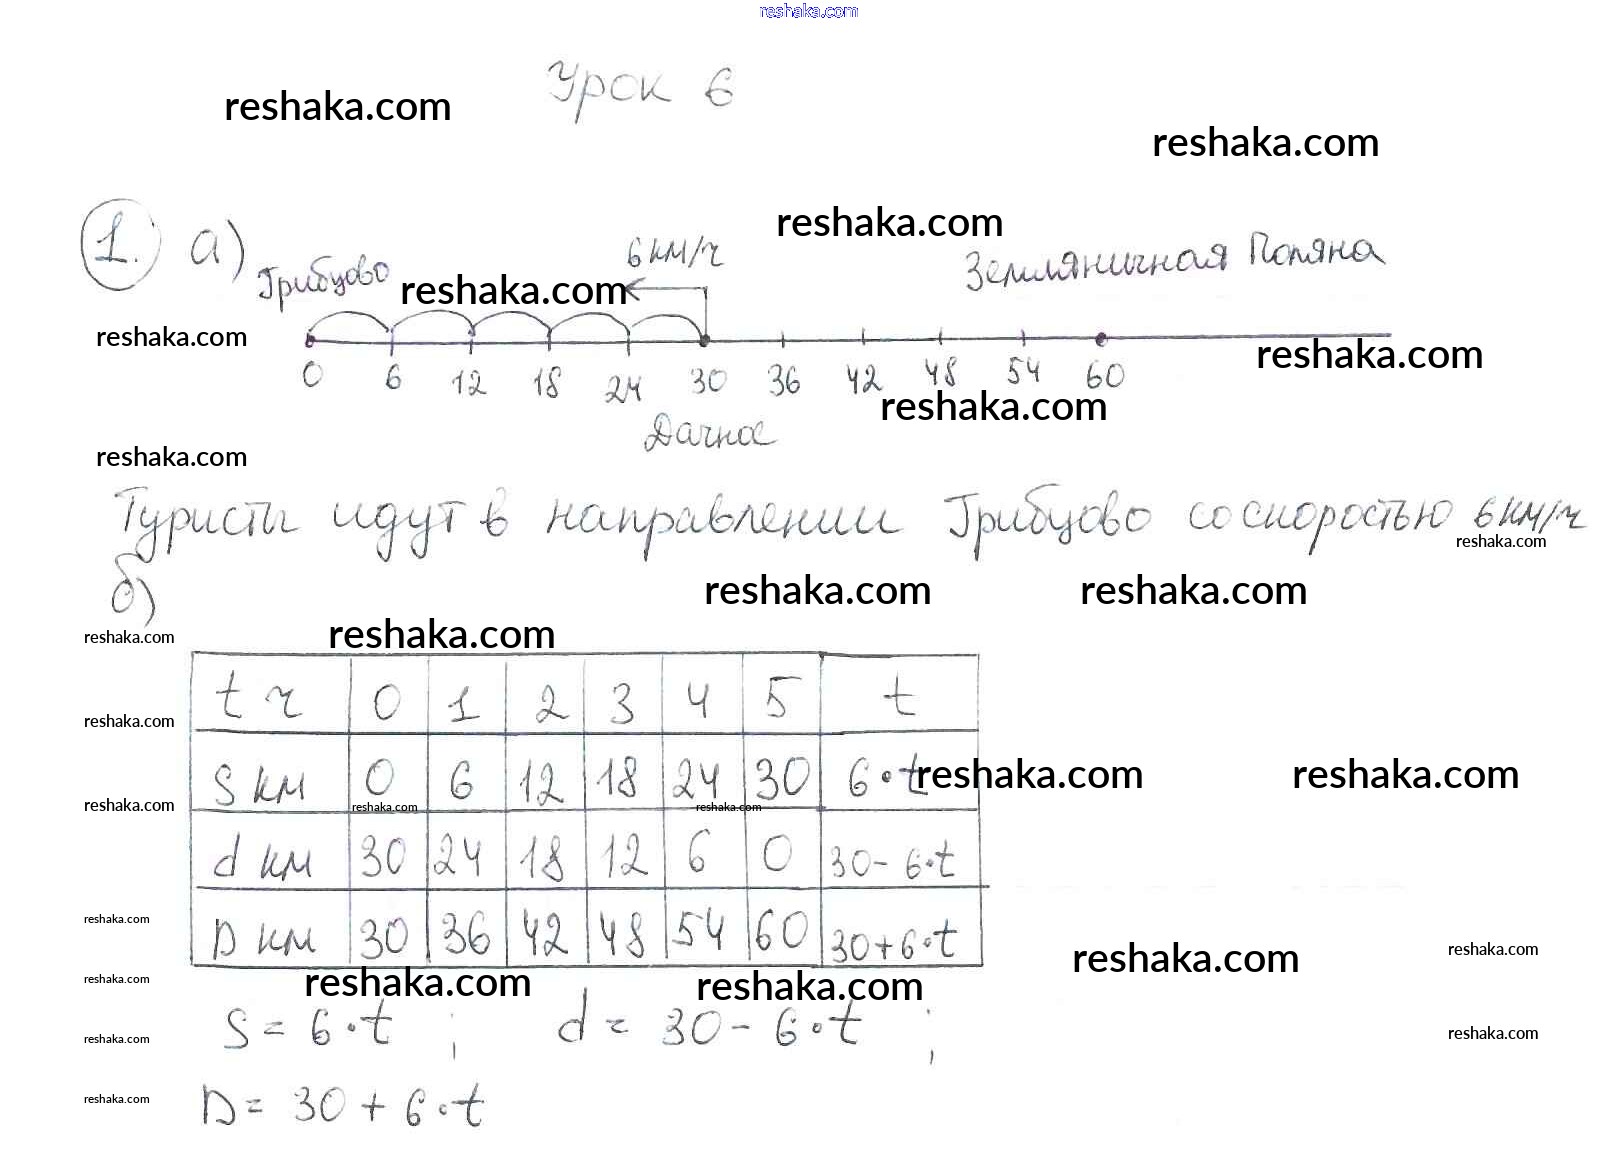 reshaka.com
Урок 6
reshaka.com
reshaka.com
reshaka.com
1. а) Грибцово 6 км/ч Земляничная Поляна
reshaka.com
reshaka.com
0 6 12 18 24 30 36 42 48 54 60
reshaka.com
reshaka.com
Дачное
reshaka.com
Туристы идут в направлении Грибцово со скоростью 6 км/ч
reshaka.com
б)
reshaka.com reshaka.com
reshaka.com reshaka.com
t ч 0 1 2 3 4 5 t
reshaka.com
S км 0 6 12 18 24 30 6·t
reshaka.com reshaka.com
reshaka.com reshaka.com reshaka.com
d км 30 24 18 12 6 0 30-6·t
reshaka.com
D км 30 36 42 48 54 60 30+6·t
reshaka.com reshaka.com
reshaka.com reshaka.com reshaka.com
S = 6·t ; d = 30 - 6·t ;
reshaka.com reshaka.com
D = 30 + 6·t
reshaka.com